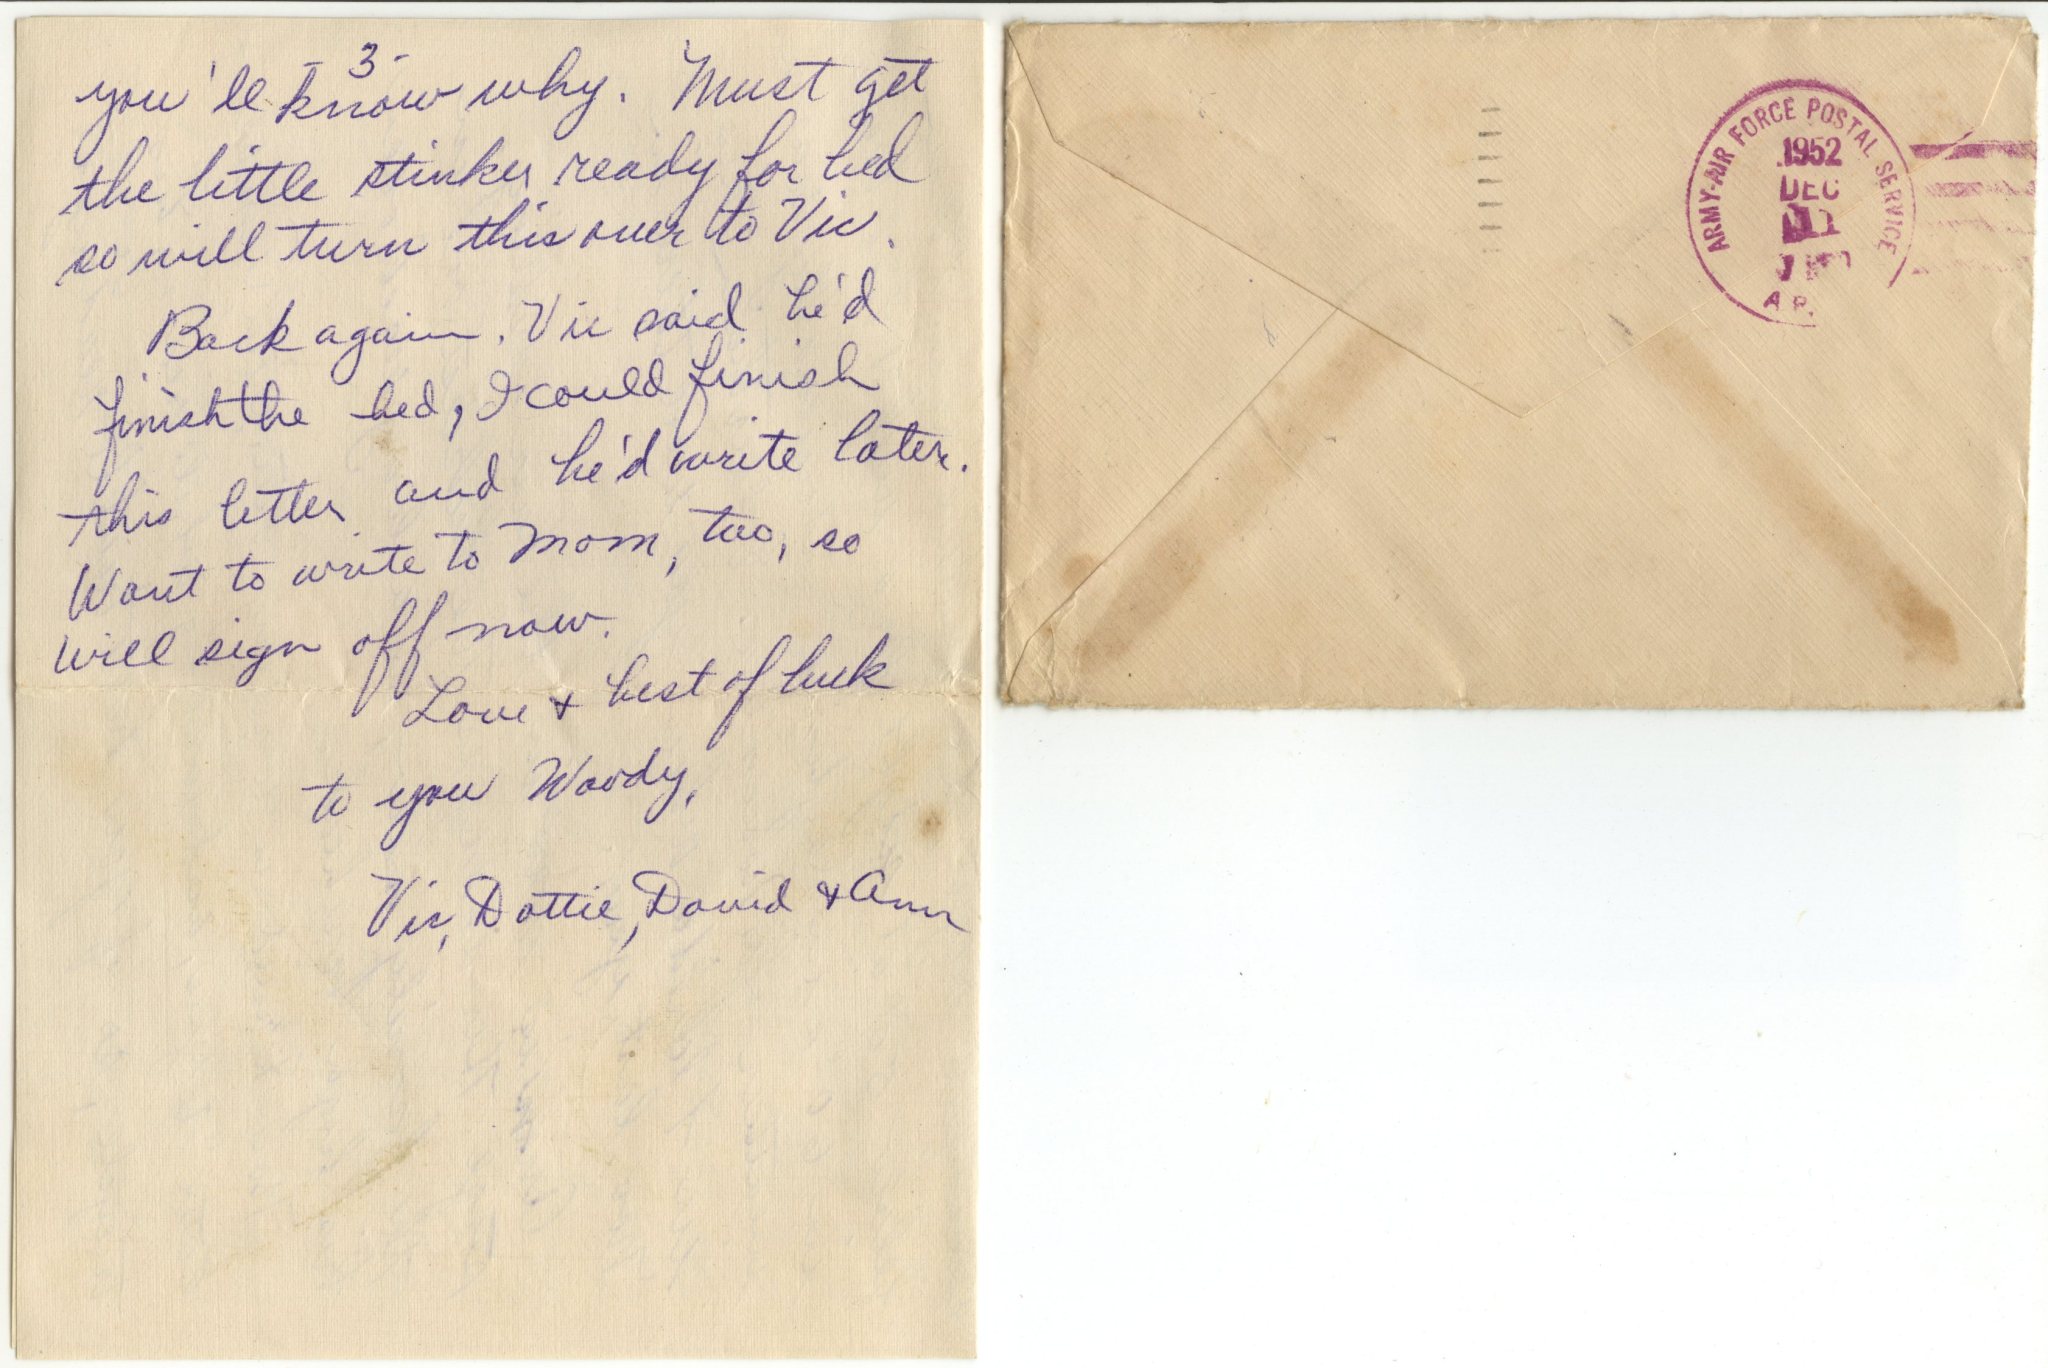 -3-
you'll know why. Must get
the little stinker ready for bed
so will turn this over to Vic.
Back again. Vic said he'd
finish the bed, I could finish
this letter and he'd write later.
Want to write to Mom, too, so
will sign off now.
Love + best of luck
to you Woody,
Vic, Dottie, David + Ann
ARMY-AIR FORCE POSTAL SERVICE
1952
DEC
11